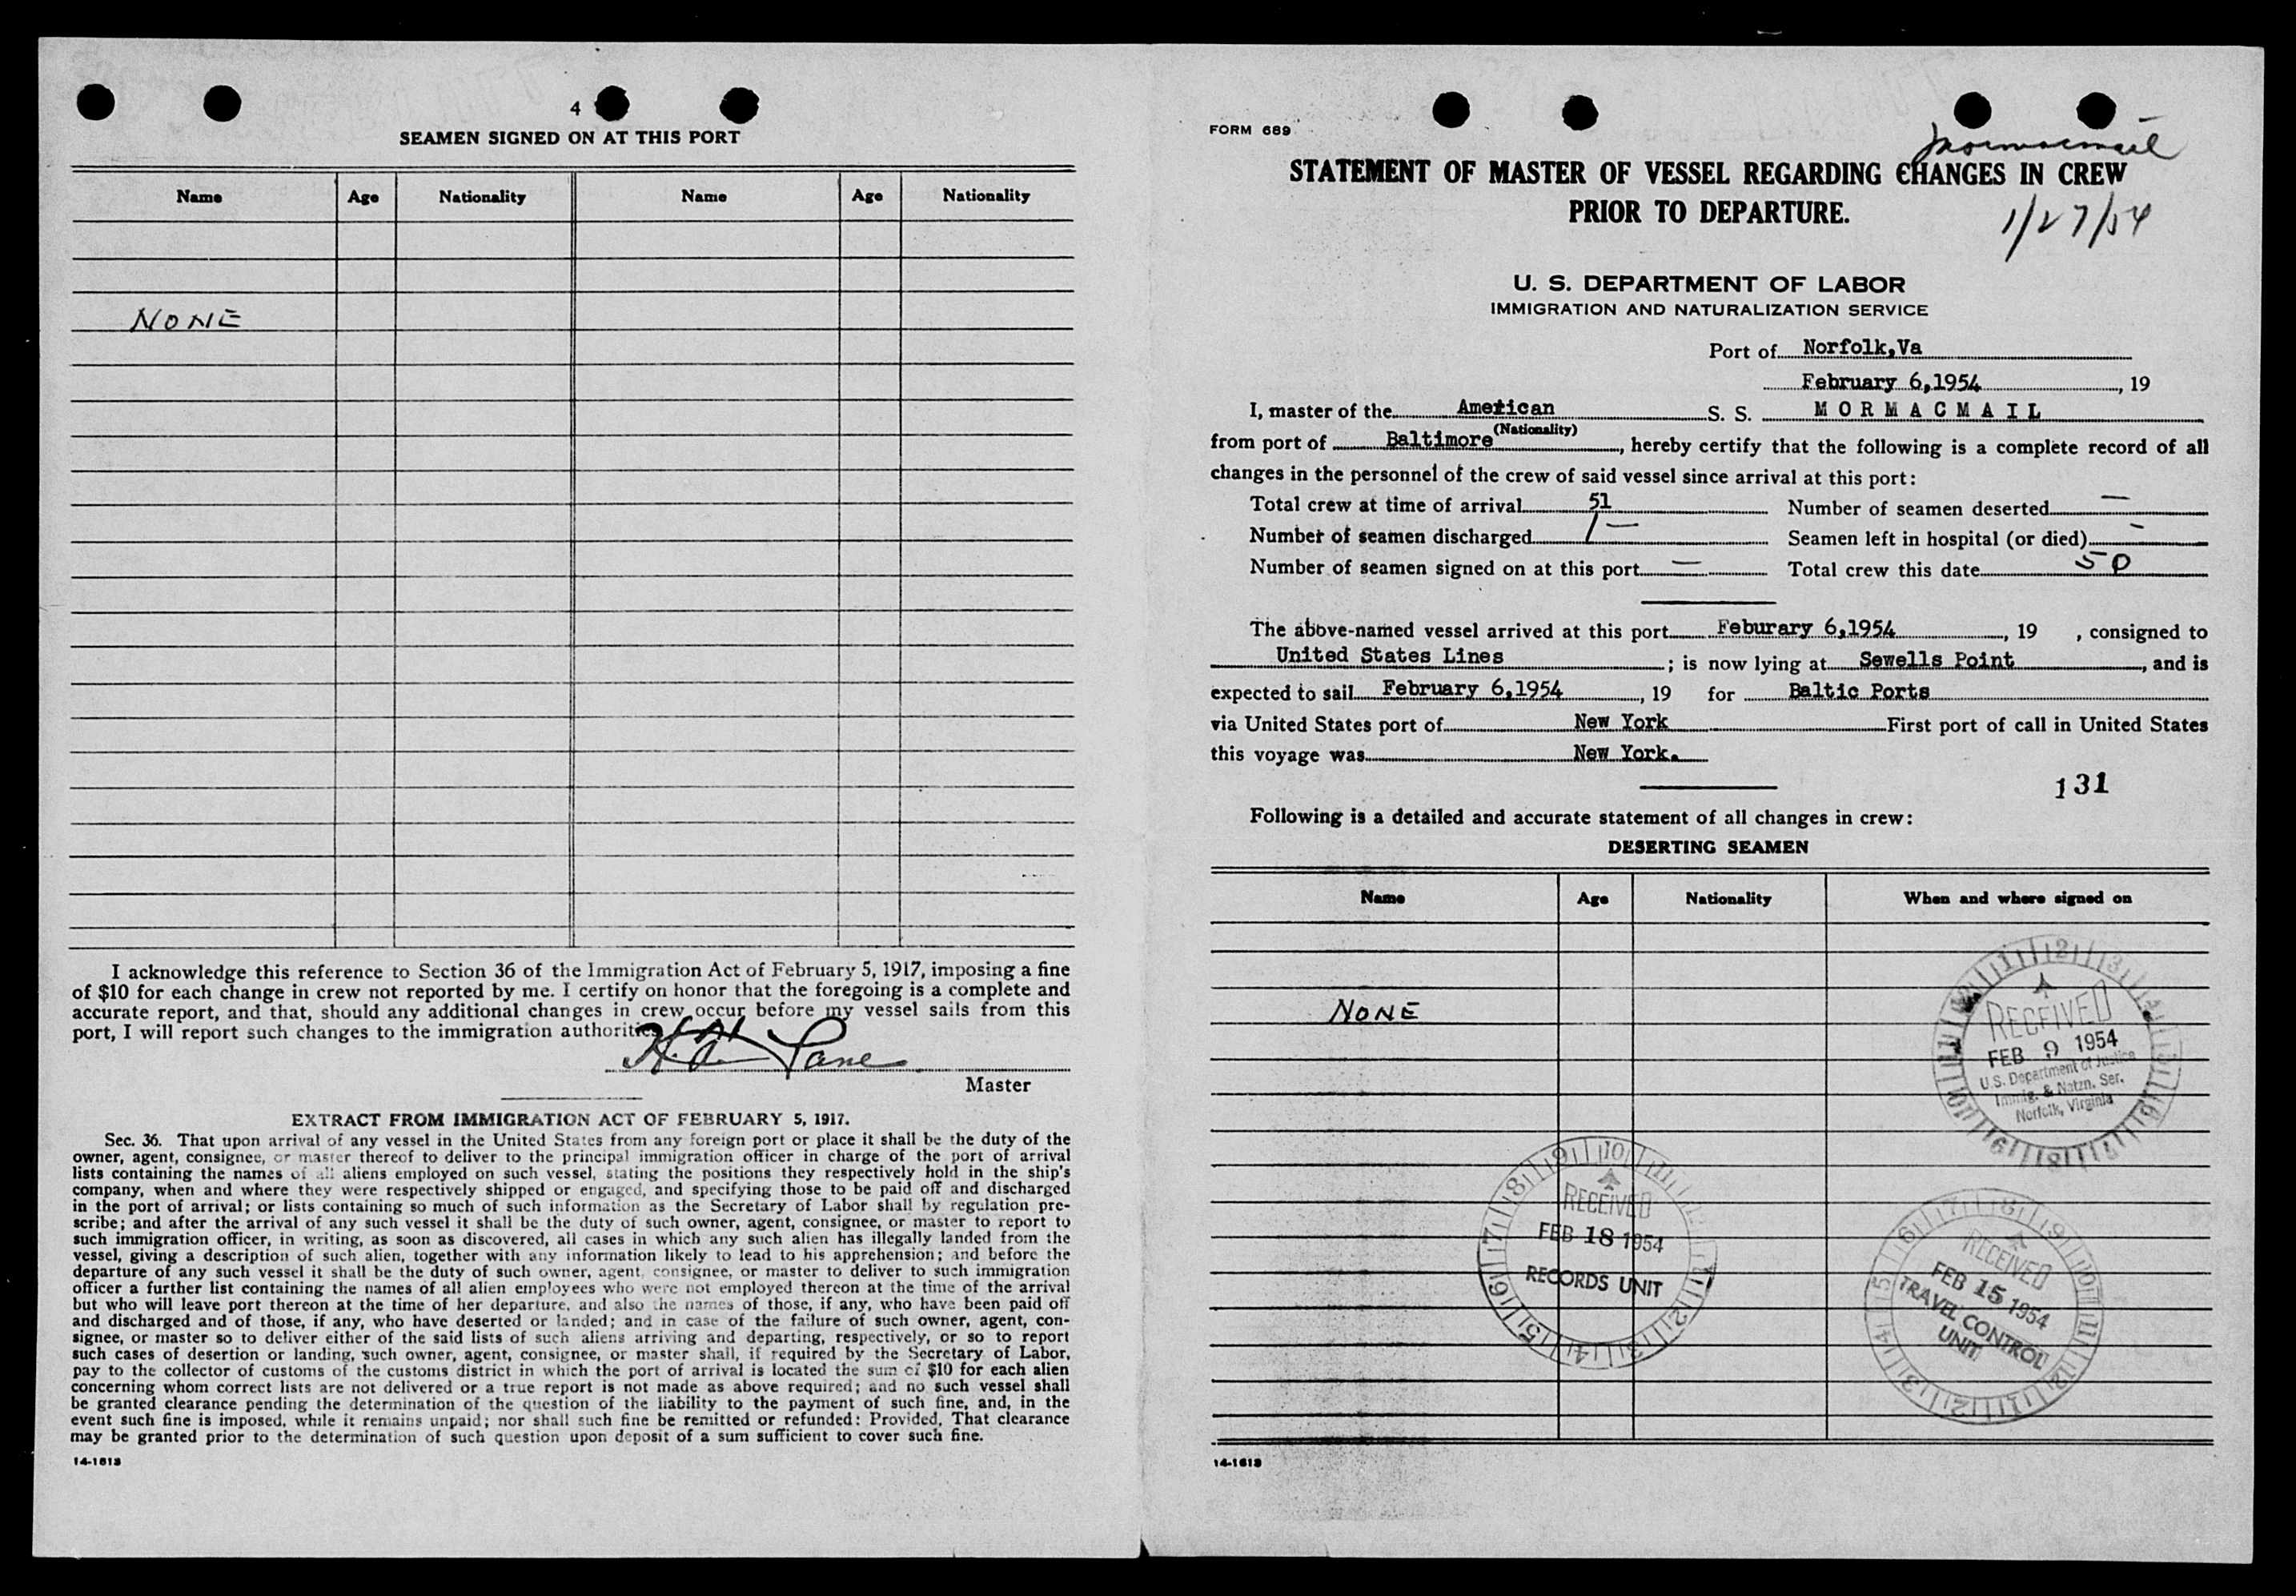 4
SEAMEN SIGNED ON AT THIS PORT
Name Age Nationality Name Age Nationality
NONE
I acknowledge this reference to Section 36 of the Immigration Act of February 5, 1917, imposing a fine
of $10 for each change in crew not reported by me. I certify on honor that the foregoing is a complete and
accurate report, and that, should any additional changes in crew occur before my vessel sails from this
port, I will report such changes to the immigration authorities.
Lane
Master
EXTRACT FROM IMMIGRATION ACT OF FEBRUARY 5, 1917.
Sec. 36. That upon arrival of any vessel in the United States from any foreign port or place it shall be the duty of the
owner, agent, consignee, or master thereof to deliver to the principal immigration officer in charge of the port of arrival
lists containing the names of all aliens employed on such vessel, stating the positions they respectively hold in the ship's
company, when and where they were respectively shipped or engaged, and specifying those to be paid off and discharged
in the port of arrival; or lists containing so much of such information as the Secretary of Labor shall by regulation pre-
scribe; and after the arrival of any such vessel it shall be the duty of such owner, agent, consignee, or master to report to
such immigration officer, in writing, as soon as discovered, all cases in which any such alien has illegally landed from the
vessel, giving a description of such alien, together with any information likely to lead to his apprehension; and before the
departure of any such vessel it shall be the duty of such owner, agent, consignee, or master to deliver to such immigration
officer a further list containing the names of all alien employees who were not employed thereon at the time of the arrival
but who will leave port thereon at the time of her departure, and also the names of those, if any, who have been paid off
and discharged and of those, if any, who have deserted or landed; and in case of the failure of such owner, agent, con-
signee, or master so to deliver either of the said lists of such aliens arriving and departing, respectively, or so to report
such cases of desertion or landing, such owner, agent, consignee, or master shall, if required by the Secretary of Labor,
pay to the collector of customs of the customs district in which the port of arrival is located the sum of $10 for each alien
concerning whom correct lists are not delivered or a true report is not made as above required; and no such vessel shall
be granted clearance pending the determination of the question of the liability to the payment of such fine, and, in the
event such fine is imposed, while it remains unpaid; nor shall such fine be remitted or refunded: Provided, That clearance
may be granted prior to the determination of such question upon deposit of a sum sufficient to cover such fine.
14-1613
FORM 689
Mormacmail
STATEMENT OF MASTER OF VESSEL REGARDING CHANGES IN CREW
PRIOR TO DEPARTURE.
1/27/54
U. S. DEPARTMENT OF LABOR
IMMIGRATION AND NATURALIZATION SERVICE
Port of Norfolk,Va
February 6,1954, 19
I, master of the American S. S. MORMACMAIL
(Nationality)
from port of Baltimore, hereby certify that the following is a complete record of all
changes in the personnel of the crew of said vessel since arrival at this port:
Total crew at time of arrival 51 Number of seamen deserted —
Number of seamen discharged 1 — Seamen left in hospital (or died) -
Number of seamen signed on at this port — Total crew this date 50
The above-named vessel arrived at this port Feburary 6,1954, 19 , consigned to
United States Lines ; is now lying at Sewells Point, and is
expected to sail February 6,1954, 19 for Baltic Ports
via United States port of New York First port of call in United States
this voyage was New York.
131
Following is a detailed and accurate statement of all changes in crew:
DESERTING SEAMEN
Name Age Nationality When and where signed on
NONE
RECEIVED
FEB 9 1954
U.S. Department of Justice
Immig. & Natzn. Ser.
Norfolk, Virginia
RECEIVED
FEB 18 1954
RECORDS UNIT
RECEIVED
FEB 15 1954
TRAVEL CONTROL
UNIT
14-1613